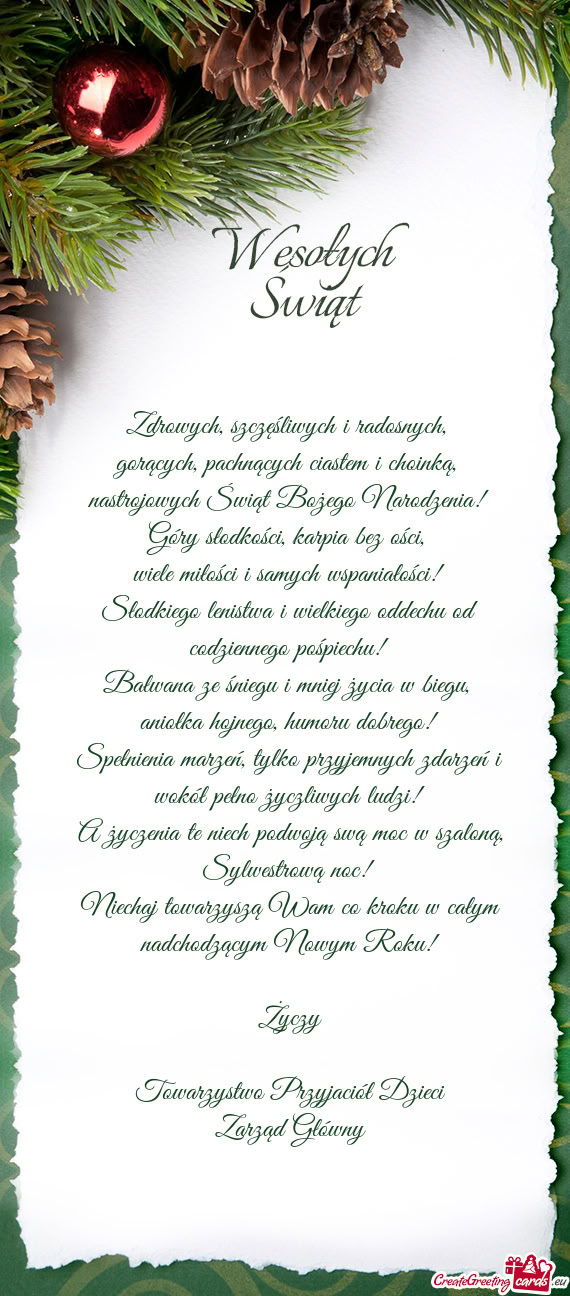 Wesołych
Świąt
Zdrowych, szczęśliwych i radosnych,
gorących, pachnących ciastem i choinką,
nastrojowych Świąt Bożego Narodzenia!
Góry słodkości, karpia bez ości,
wiele miłości i samych wspaniałości!
Słodkiego lenistwa i wielkiego oddechu od
codziennego pośpiechu!
Bałwana ze śniegu i mniej życia w biegu,
aniołka hojnego, humoru dobrego!
Spełnienia marzeń, tylko przyjemnych zdarzeń i
wokół pełno życzliwych ludzi!
A życzenia te niech podwoją swą moc w szaloną,
Sylwestrową noc!
Niechaj towarzyszą Wam co kroku w całym
nadchodzącym Nowym Roku!
Życzy
Towarzystwo Przyjaciół Dzieci
Zarząd Główny
CreateGreetingcards.eu